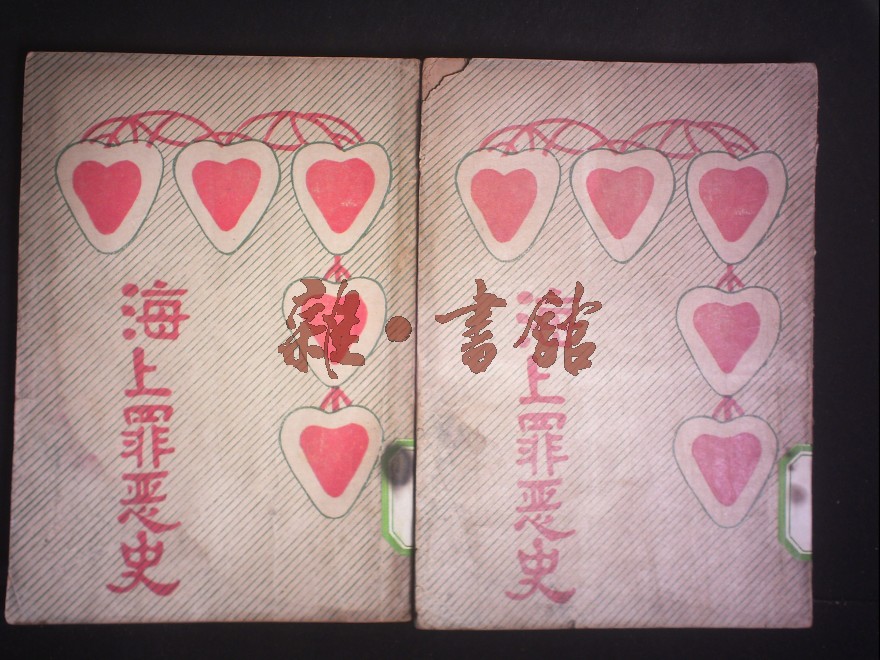 海上罪惡史
海上罪惡史
雜·書館